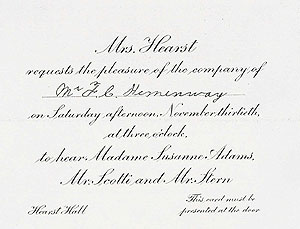 Mrs. Hearst
requests the pleasure of the company of
Mr F. C. Hemenway
on Saturday afternoon, November thirtieth,
at three o'clock,
to hear Madame Susanne Adams,
Mr. Scotti and Mr. Stern
Hearst Hall
This card must be
presented at the door